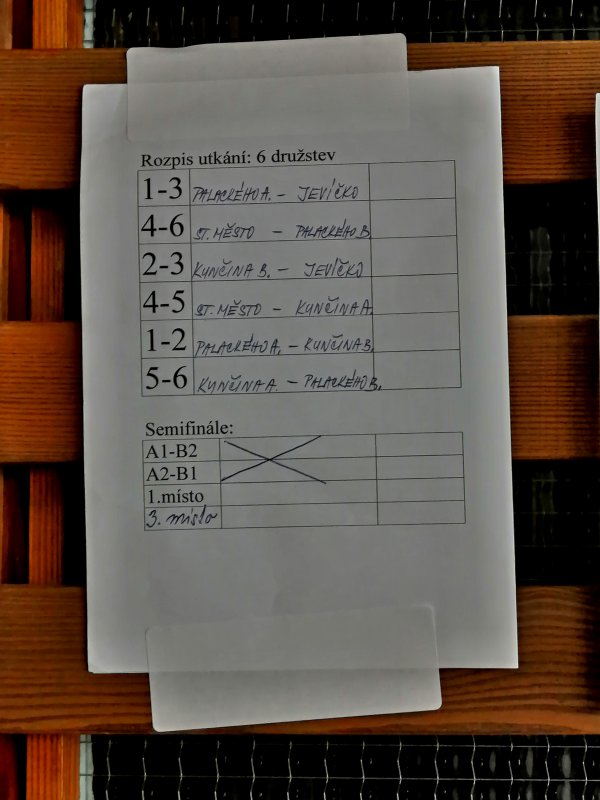 Rozpis utkání: 6 družstev
1-3 PALACKÉHO A. - JEVÍČKO
4-6 ST. MĚSTO - PALACKÉHO B.
2-3 KUNČINA B. - JEVÍČKO
4-5 ST. MĚSTO - KUNČINA A.
1-2 PALACKÉHO A. - KUNČINA B.
5-6 KUNČINA A. - PALACKÉHO B.
Semifinále:
A1-B2
A2-B1
1.místo
3. místo